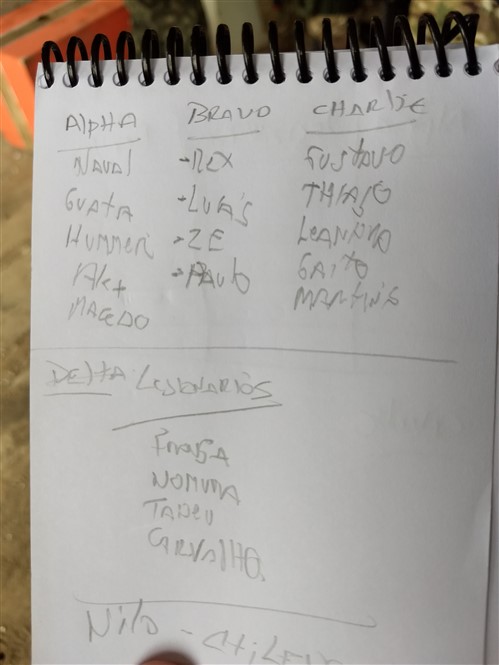 ALPHA BRAVO CHARLIE
NAVAL -REX GUSTAVO
GUATA -LUCAS THIAGO
HUMMER -ZE LEANDRO
Alex -PAULO GAITO
MACEDO MARTINS
DELTA LEGIONARIOS
FRAGA
NOMURA
TADEU
CARVALHO
Nilo - CHILENO